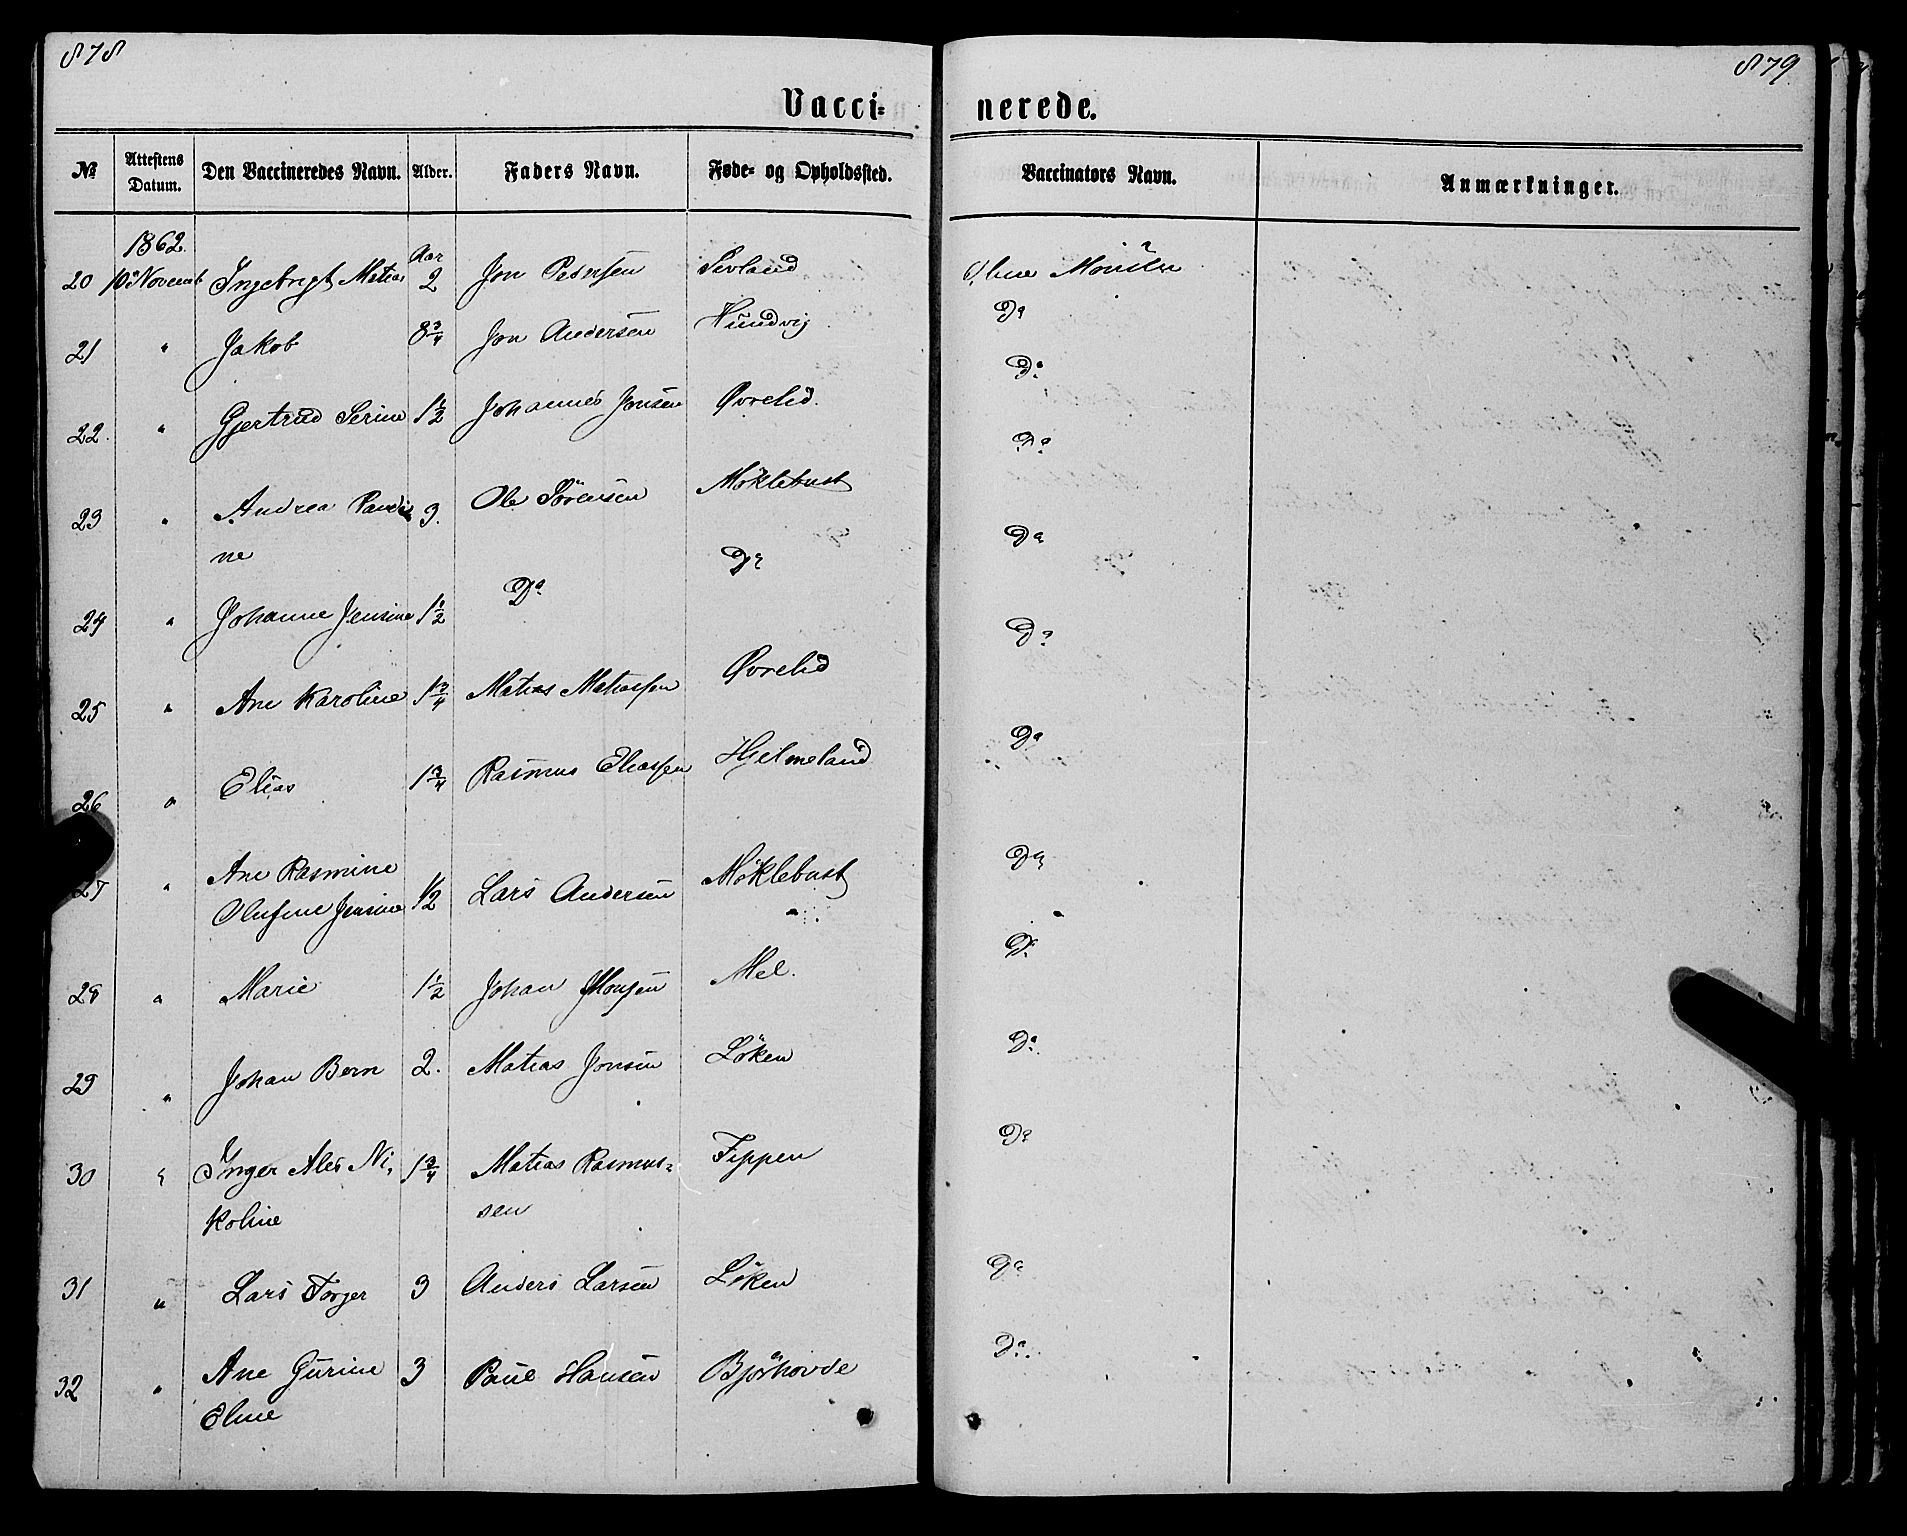 878
879
Vacci= nerede.
№ Attestens Datum. Den Vaccineredes Navn. Alder. Faders Navn. Føde- og Opholdssted. Vaccinators Navn. Anmærkninger.
1862. Aar
20 10 Novemb Ingebrigt Matias 2 Jon Pedersen Sivland
21 " Jakob 8 3/4 Jon Andersen Hundvig Do
22. " Gjertrud Serine 1 1/2 Johannes Jonsen Øvrelid. Do
23 " Andrea Pauli 3. Ole Sörensen Möklebust Do
ne
24 " Johanne Jensine 1 1/2 Do Do Do
25 " Ane Karoline 1 3/4 Matias Matiassen Øvrelid Do
26 " Elias 1 3/4 Rasmus Eliassen Hjelmeland Do
27 " Ane Rasmine
Olufine Jensine 1/2 Lars Andersen Möklebust Do
28 " Marie 1 1/2 Johan Monsen Mel. Do
29 " Johan Bern 2. Matias Jonsen Löken Do
30 " Inger Ales Ni, 1 3/4 Matias Rasmus= Tippen Do
koline sen
31 " Lars Torger 3 Anders Larsen Löken Do
32 " Ane Gurine 3 Paul Hansen Björhovde Do
Eline